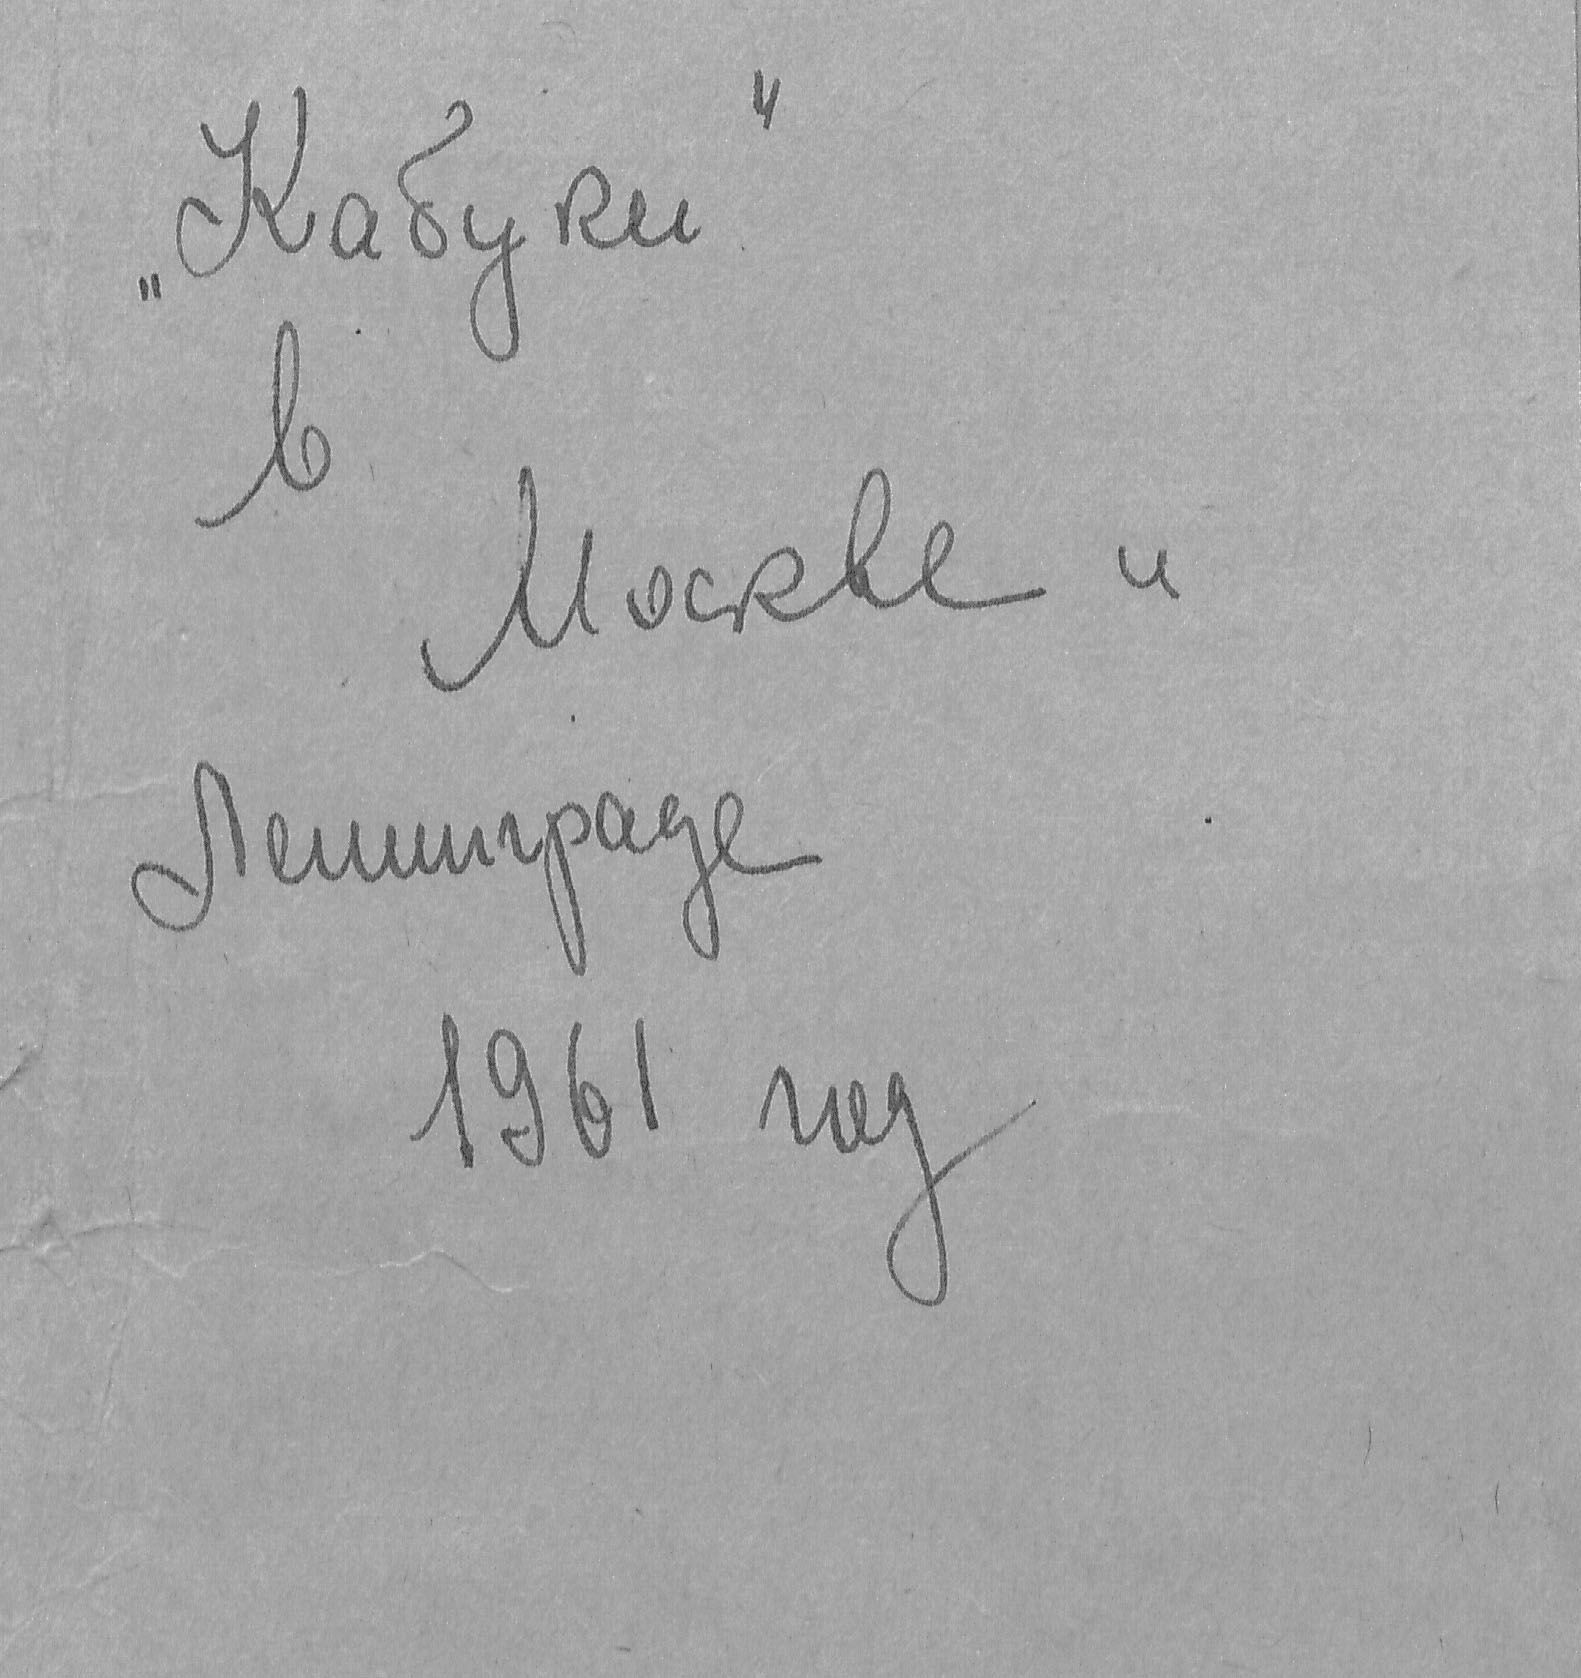 „Кабуки"
в
Москве и
Ленинграде
1961 год